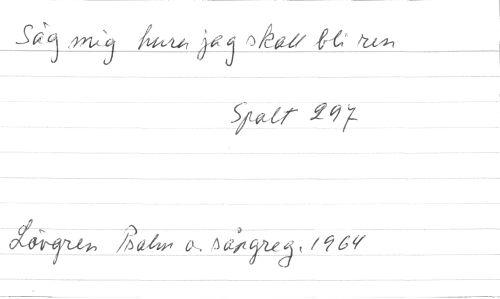 Säg mig huru jag skall bli ren
Spalt 297
Lövgren Psalm o. sångreg. 1964